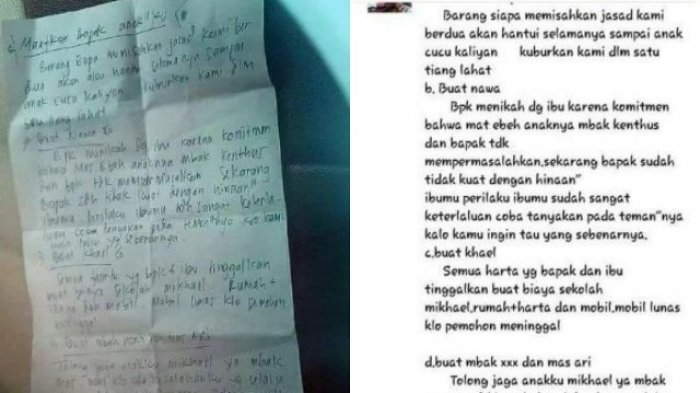 a) Maafkan bapak anakku
Barang siapa memisahkan jasad kami ber
dua akan hantui selamanya sampai
anak cucu kaliyan kuburkan kami dlm
satu liang lahat
Buat Nawa
Bpk menikah dg ibu karena komitmen
bahwa Mas Ebah anaknya mbak Kenthus
dan bpk tdk mempermasalahkan. Sekarang
Bapak sdh tidak kuat dengan hinaan"
ibumu Perilaku ibumu sdh sangat keterla-
luan coba tanyakan pada klo kamu
ingin tau yg sebenarnya.
Buat khael
Semua harta yg bpk + ibu tinggalkan
buat biaya sekolah mikhael. Rumah +
harta dan mobil. Mobil lunas klo pemohon
meninggal
buat mbak dan mas Ari
Tolong jaga anakku mikhael ya mbak
Barang siapa memisahkan jasad kami
berdua akan hantui selamanya sampai anak
cucu kaliyan kuburkan kami dlm satu
tiang lahat
b. Buat nawa
Bpk menikah dg ibu karena komitmen
bahwa mat ebeh anaknya mbak kenthus
dan bapak tdk
mempermasalahkan,sekarang bapak sudah
tidak kuat dengan hinaan"
ibumu perilaku ibumu sudah sangat
keterlaluan coba tanyakan pada teman"nya
kalo kamu ingin tau yang sebenarnya,
c,buat khael
Semua harta yg bapak dan ibu
tinggalkan buat biaya sekolah
mikhael,rumah+harta dan mobil,mobil lunas
klo pemohon meninggal
d,buat mbak xxx dan mas ari
Tolong jaga anakku mikhael ya mbak